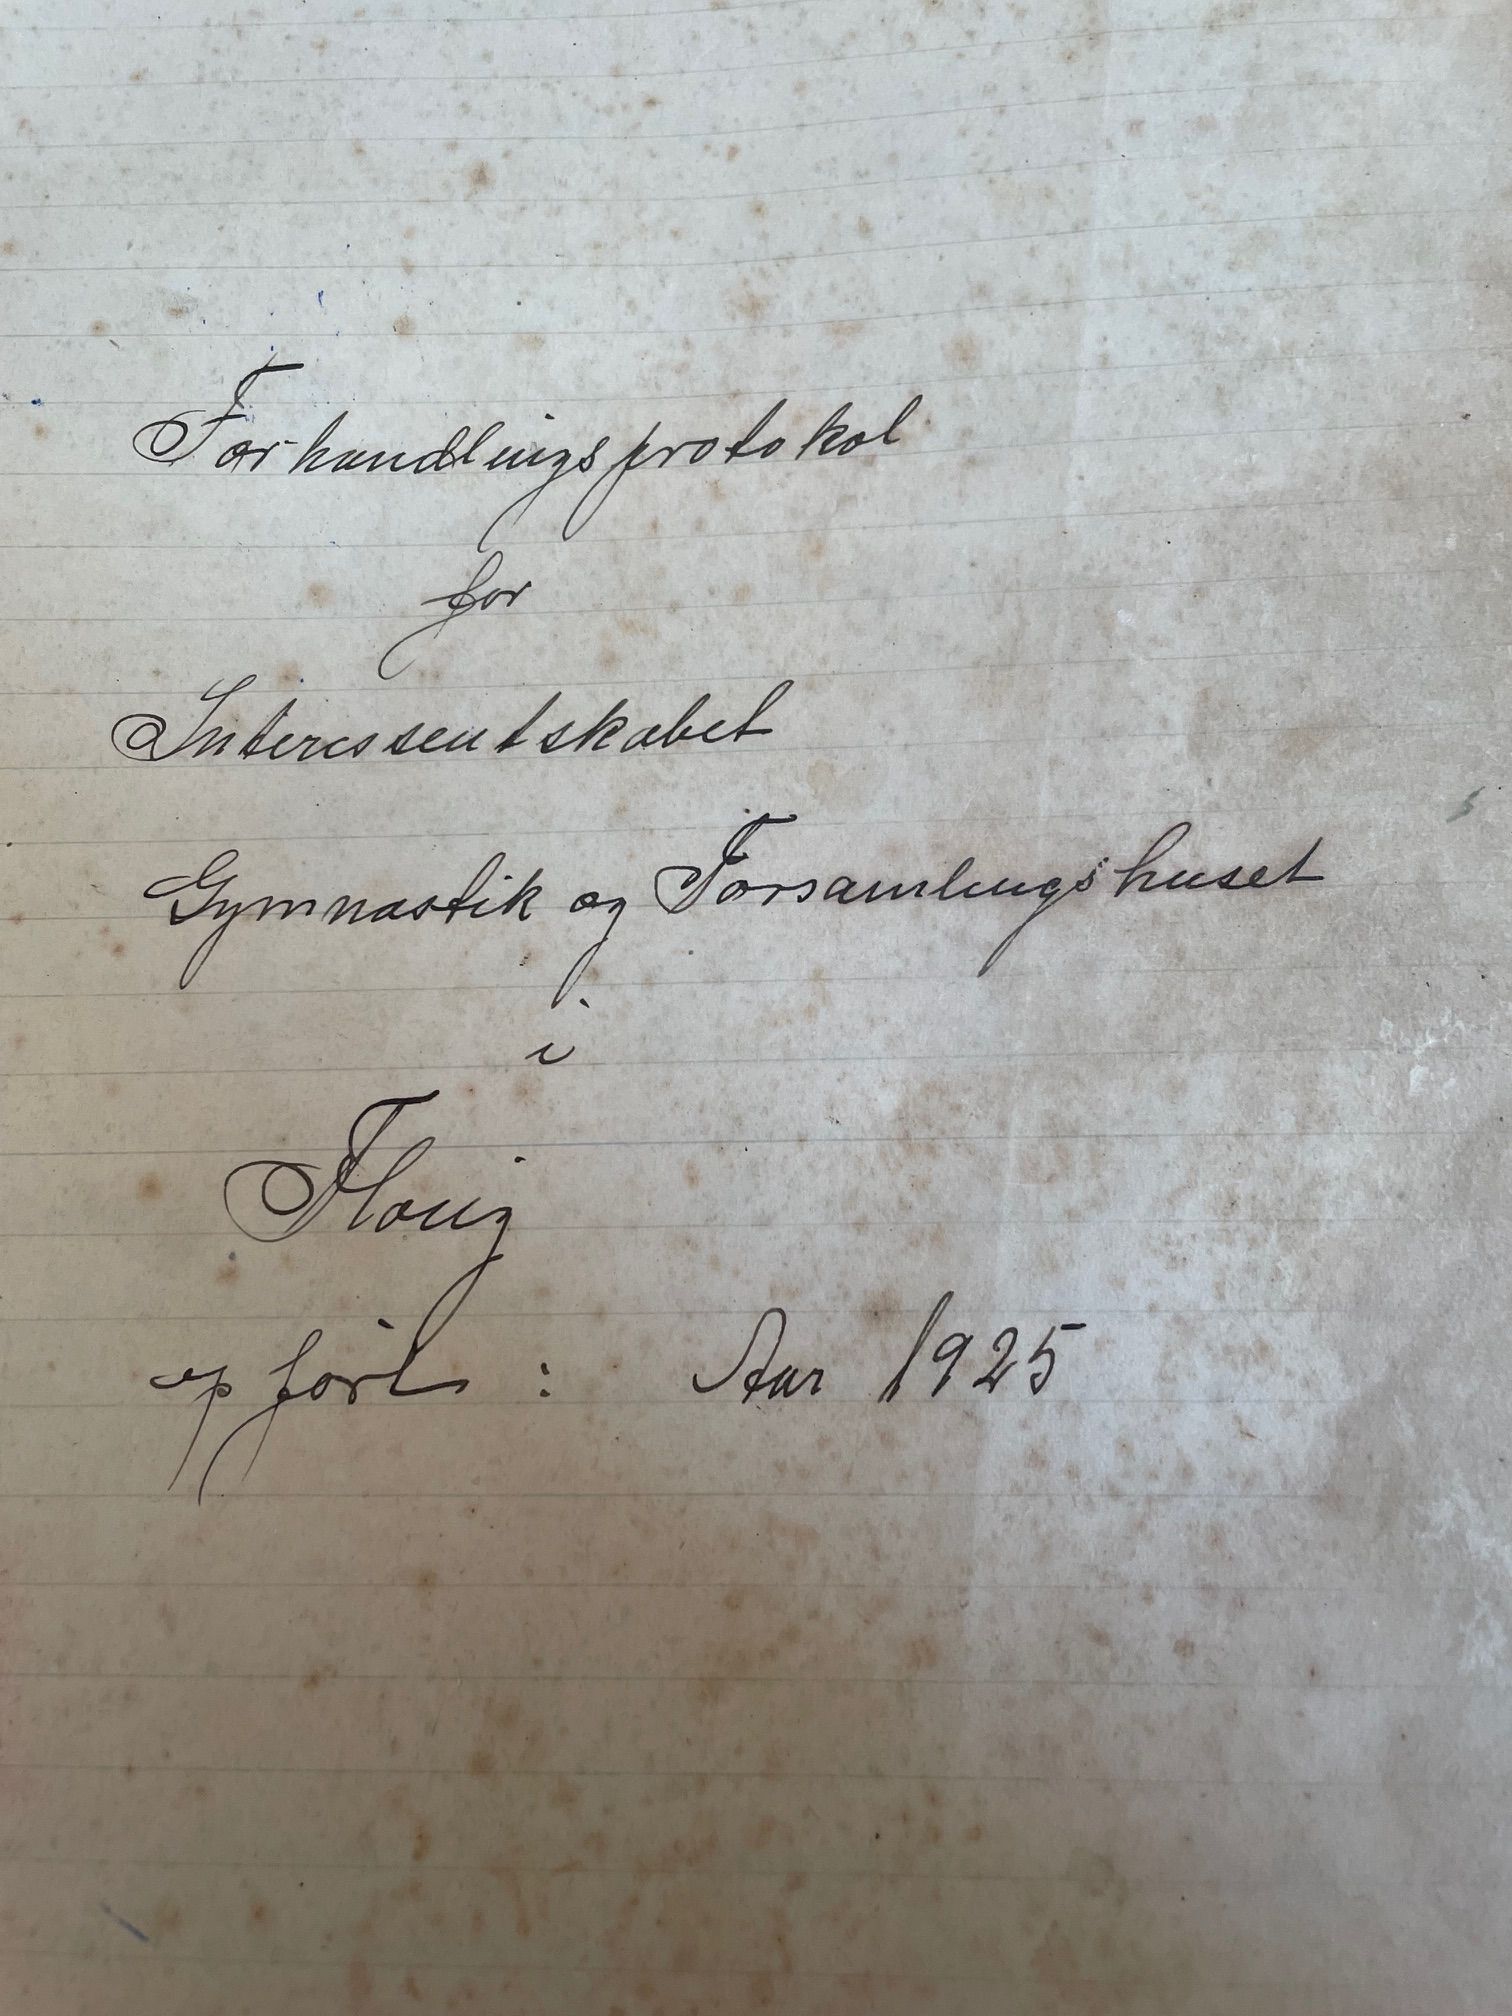 Forhandlingsprotokol
for
Interessentskabet
Gymnastik og Forsamlingshuset
i
Flovig
opfört : Aar 1925